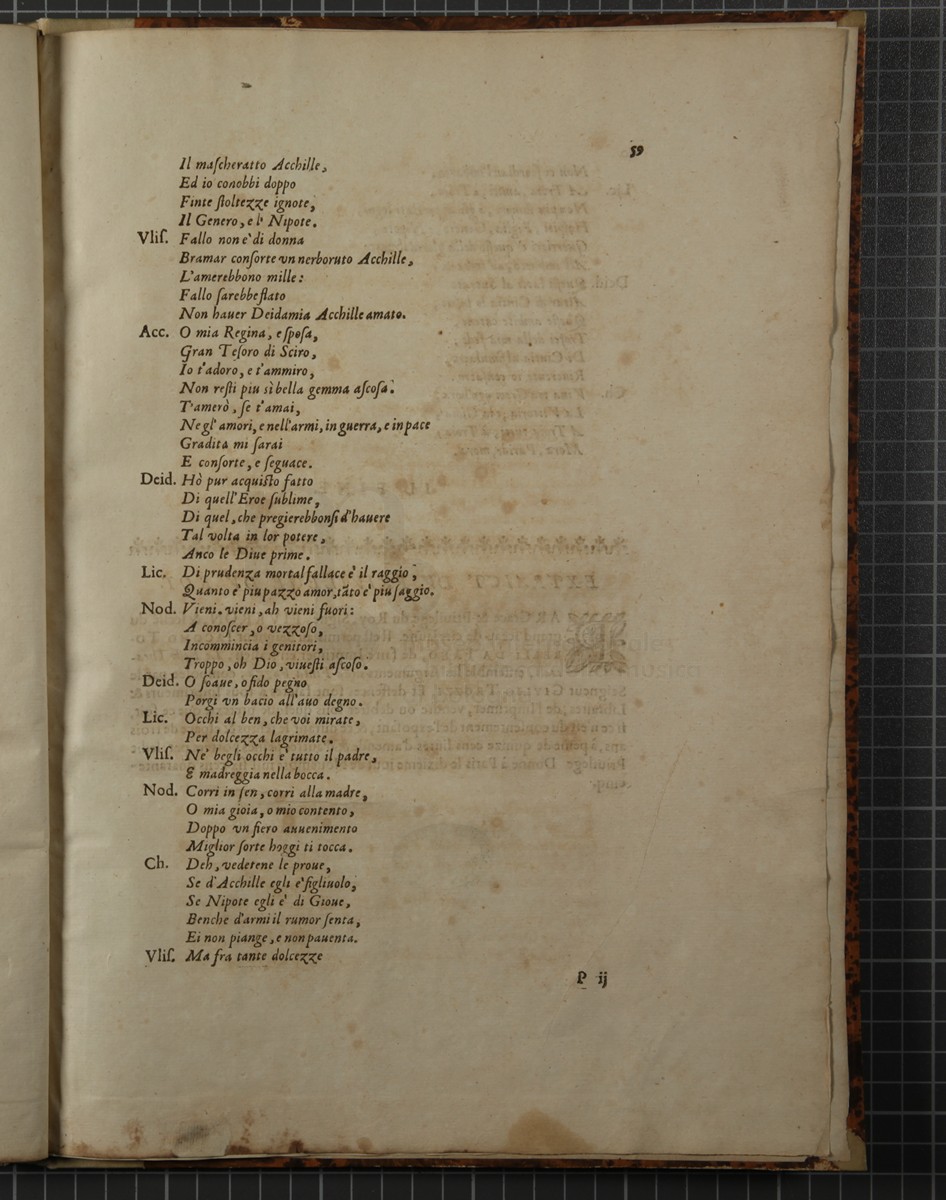 59
Il maſcheratto Acchille,
Ed io conobbi doppo
Finte ſtoltezze ignote,
Il Genero, e l' Nipote.
Vliſ. Fallo non e' di donna
Bramar conſorte vn nerboruto Acchille,
L'amerebbono mille:
Fallo ſarebbe ſtato
Non hauer Deidamia Acchille amato.
Acc. O mia Regina, e ſpoſa,
Gran Teſoro di Sciro,
Io t'adoro, e t'ammiro,
Non reſti piu sì bella gemma aſcoſa.
T'amerò, ſe t'amai,
Negl' amori, e nell'armi, in guerra, e in pace
Gradita mi ſarai
E conſorte, e ſeguace.
Deid. Hò pur acquiſto fatto
Di quell'Eroe ſublime,
Di quel, che pregierebbonſi d'hauere
Tal volta in lor potere,
Anco le Diue prime.
Lic. Di prudenza mortal fallace e' il raggio,
Quanto e' piu pazzo amor, tãto e' piu ſaggio.
Nod. Vieni. vieni, ah vieni fuori:
A conoſcer, o vezzoſo,
Incommincia i genitori,
Troppo, oh Dio, viueſti aſcoſo.
Deid. O ſoaue, o fido pegno
Porgi vn bacio all'auo degno.
Lic. Occhi al ben, che voi mirate,
Per dolcezza lagrimate.
Vliſ. Ne' begli occhi e' tutto il padre,
E madreggia nella bocca.
Nod. Corri in ſen, corri alla madre,
O mia gioia, o mio contento,
Doppo vn fiero auuenimento
Miglior ſorte hoggi ti tocca.
Ch. Deh, vedetene le proue,
Se d'Acchille egli e' figliuolo,
Se Nipote egli e' di Gioue,
Benche d'armi il rumor ſenta,
Ei non piange, e non pauenta.
Vliſ. Ma fra tante dolcezze
P ij